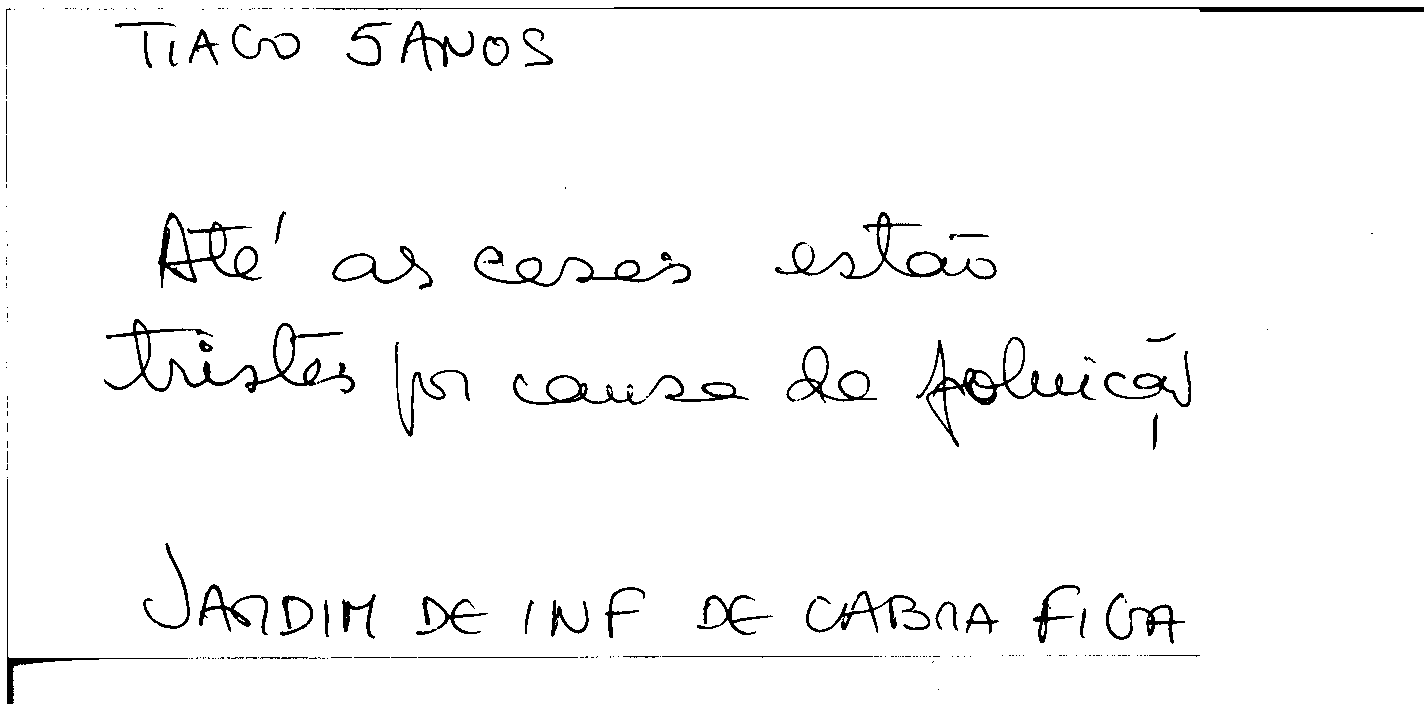 TIAGO 5 ANOS
Até as casas estão
tristes por causa da poluição
JARDIM DE INF DE CABRA FIGA